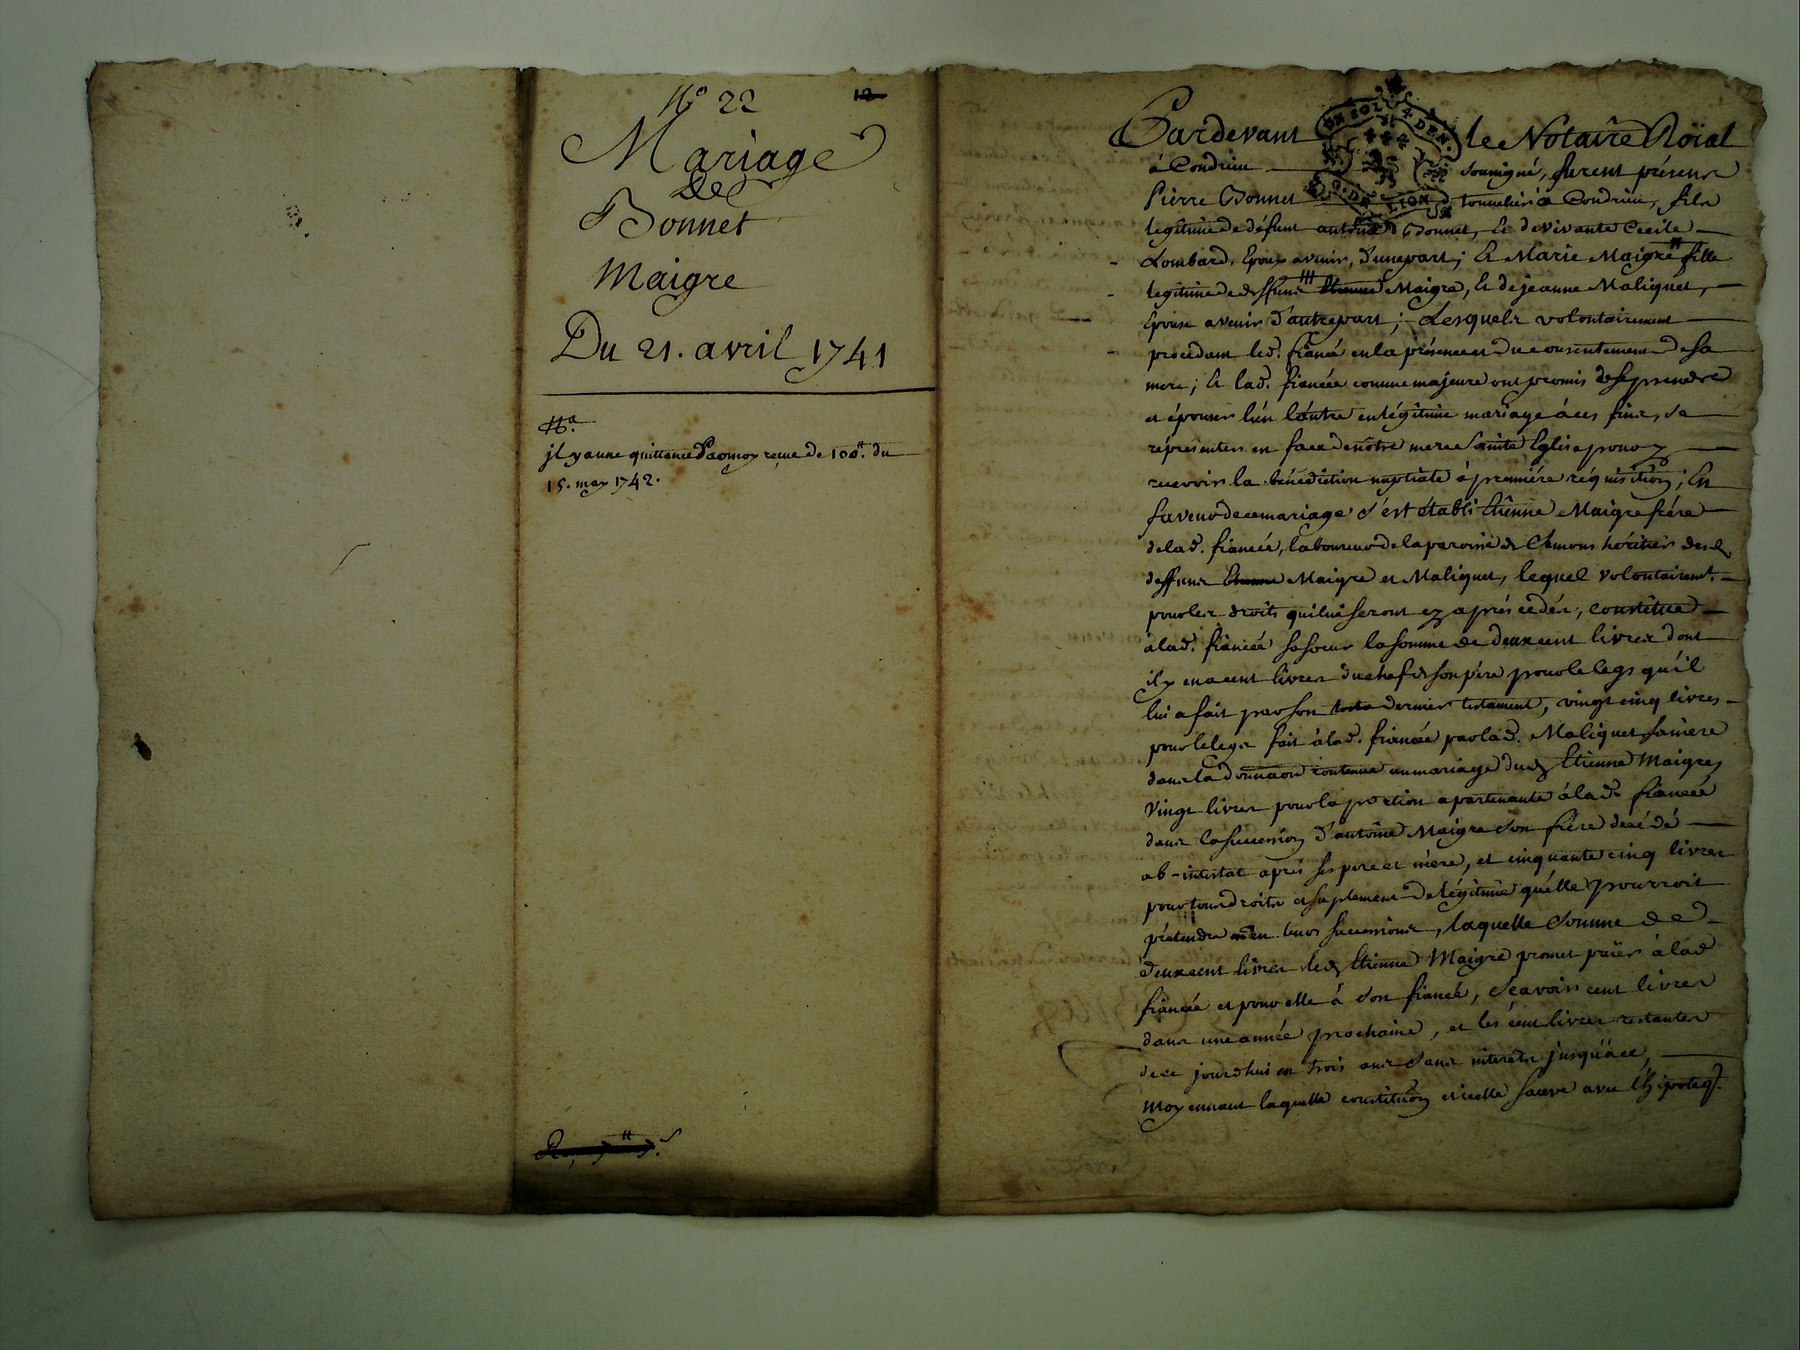 N.o 22
12
Mariage
de
Bonnet
Maigre
Du 21. avril 1741
N.a
jl y a une quittance d'acomp reçue de 100.lt du
15. may 1742.
Pardevant le Notaire Roïal
à Condrieu soussigné, furent présens
Pierre Bonnet tonnelier à Condrieu, fils
legitime de défunt antoine Bonnet, & de vivante Cecile
Lombard, Epoux avenir, d'une part; & Marie Maigre fille
legitime de deffunt Etienne Maigre, & de jeanne Maliquet,
Epouse avenir d'autre part; Lesquels volontairement
procedant led. fiancé en la présence et du consentement de sa
mere; & lad. fiancée comme majeure ont promis de se prendre
et épouser l'un l'autre en légitime mariage à ces fins, se
réprésenter en face de nôtre mere Sainte Eglise pour y
recevoir la bénédiction nuptiale à premiére réquisition; En
faveur de ce mariage s'est établi Etienne Maigre frére
de lad. fiancée, laboureur de la paroisse de héritier desd.
deffunts Etienne Maigre et Maliquet, lequel volontairemt.
pour les droits qui lui seront cy aprés cédés, constitue
à lad. fiancée sa soeur la somme de deux cent livres dont
il y en a cent livres du chef de son pére pour le legs qu'il
lui a fait par son testa dernier testament, vingt cinq livres
pour le legs fait à lad. fiancée par lad. Maliquet sa mere
dans la donnaon contenue au mariage dud. Etienne Maigre,
vingt livres pour la portion apartenante à lad. fiancée
dans la succession d'antoine Maigre son frére décédé
ab-intestat aprés ses pere et mére, et cinquante cinq livres
pour tous droits et suplement de légitime qu'elle pourroit
prétendre en leurs successions, laquelle somme de
deux cent livres led. Etienne Maigre promet païer à lad.
fiancée et pour elle à son fiancé, sçavoir cent livres
dans une année prochaine, et les cent livres restantes
de ce jourd'hui en trois ans sans interêts jusqu'à ce,
Moyennant laquelle constitution et icelle sauve avec l'hipoteq.